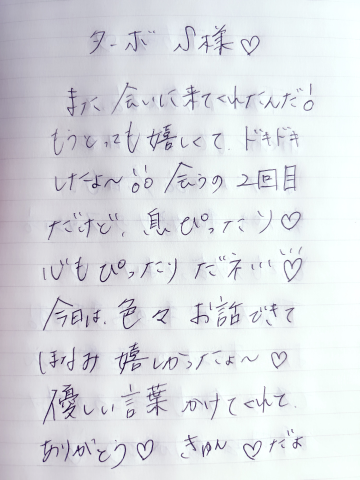 ターボ S様♡
また 会いに来てくれたんだ!!
もうとっても嬉しくて、ドキドキ
したよ〜!! 会うの 2回目
だけど、息ぴったり♡
心もぴったりだネ!!!♡
今日は、色々 お話できて
ほなみ 嬉しかったよ〜♡
優しい言葉 かけてくれて、
ありがとう♡ きゅん♡だよ